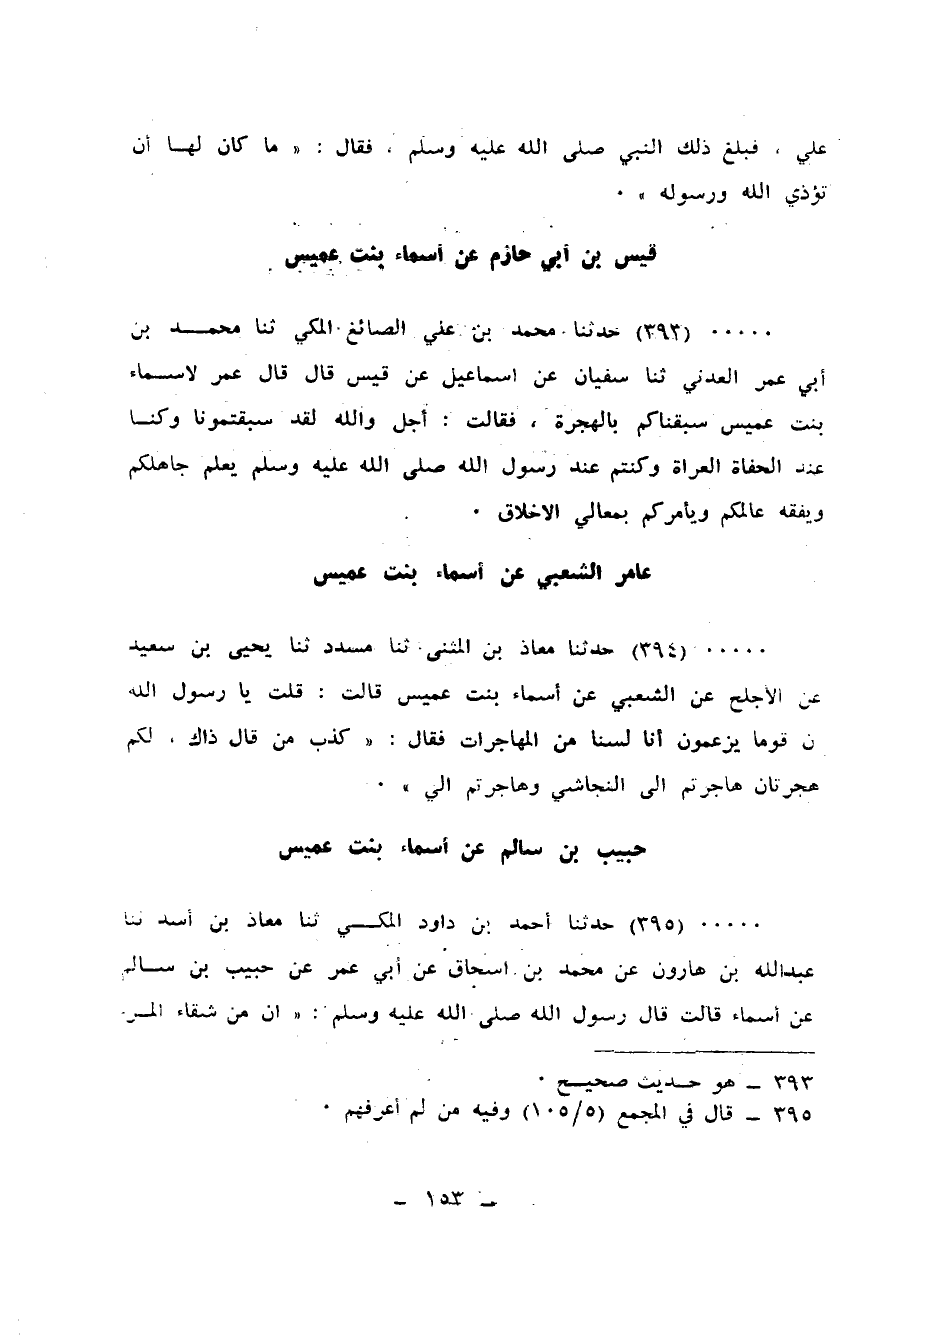 علي ، فبلغ ذلك النبي صلى الله عليه وسلم ، فقال : « ما كان لهـا أن
تؤذي الله ورسوله » ٠
قيس بن أبي حازم عن أسماء بنت عميس
٠٠٠٠٠ (٣٩٣) حدثنا محمد بن علي الصائغ المكي ثنا محمـــد بن
أبي عمر العدني ثنا سفيان عن اسماعيل عن قيس قال قال عمر لاسـماء
بنت عميس سبقناكم بالهجرة ، فقالت : أجل والله لقد سبقتمونا وكنـا
عند الحفاة العراة وكنتم عند رسول الله صلى الله عليه وسلم يعلم جاهلكم
ويفقه عالمكم ويأمركم بمعالي الاخلاق ٠
عامر الشعبي عن أسماء بنت عميس
٠٠٠٠٠ (٣٩٤) حدثنا معاذ بن المثنى ثنا مسدد ثنا يحيى بن سعيد
عن الأجلح عن الشعبي عن أسماء بنت عميس قالت : قلت يا رسول الله
ن قوما يزعمون أنا لسنا من المهاجرات فقال : « كذب من قال ذاك ، لكم
هجرتان هاجرتم الى النجاشي وهاجرتم الي » ٠
حبيب بن سالم عن أسماء بنت عميس
٠٠٠٠٠ (٣٩٥) حدثنا أحمد بن داود المكـــي ثنا معاذ بن أسد ثنا
عبدالله بن هارون عن محمد بن اسحاق عن أبي عمر عن حبيب بن سـالم
عن أسماء قالت قال رسول الله صلى الله عليه وسلم : « ان من شقاء المـر
٣٩٣ ــ هو حـديث صحيـح ٠
٣٩٥ ــ قال في المجمع (١٠٥/٥) وفيه من لم أعرفهم ٠
ــ ١٥٣ ــ